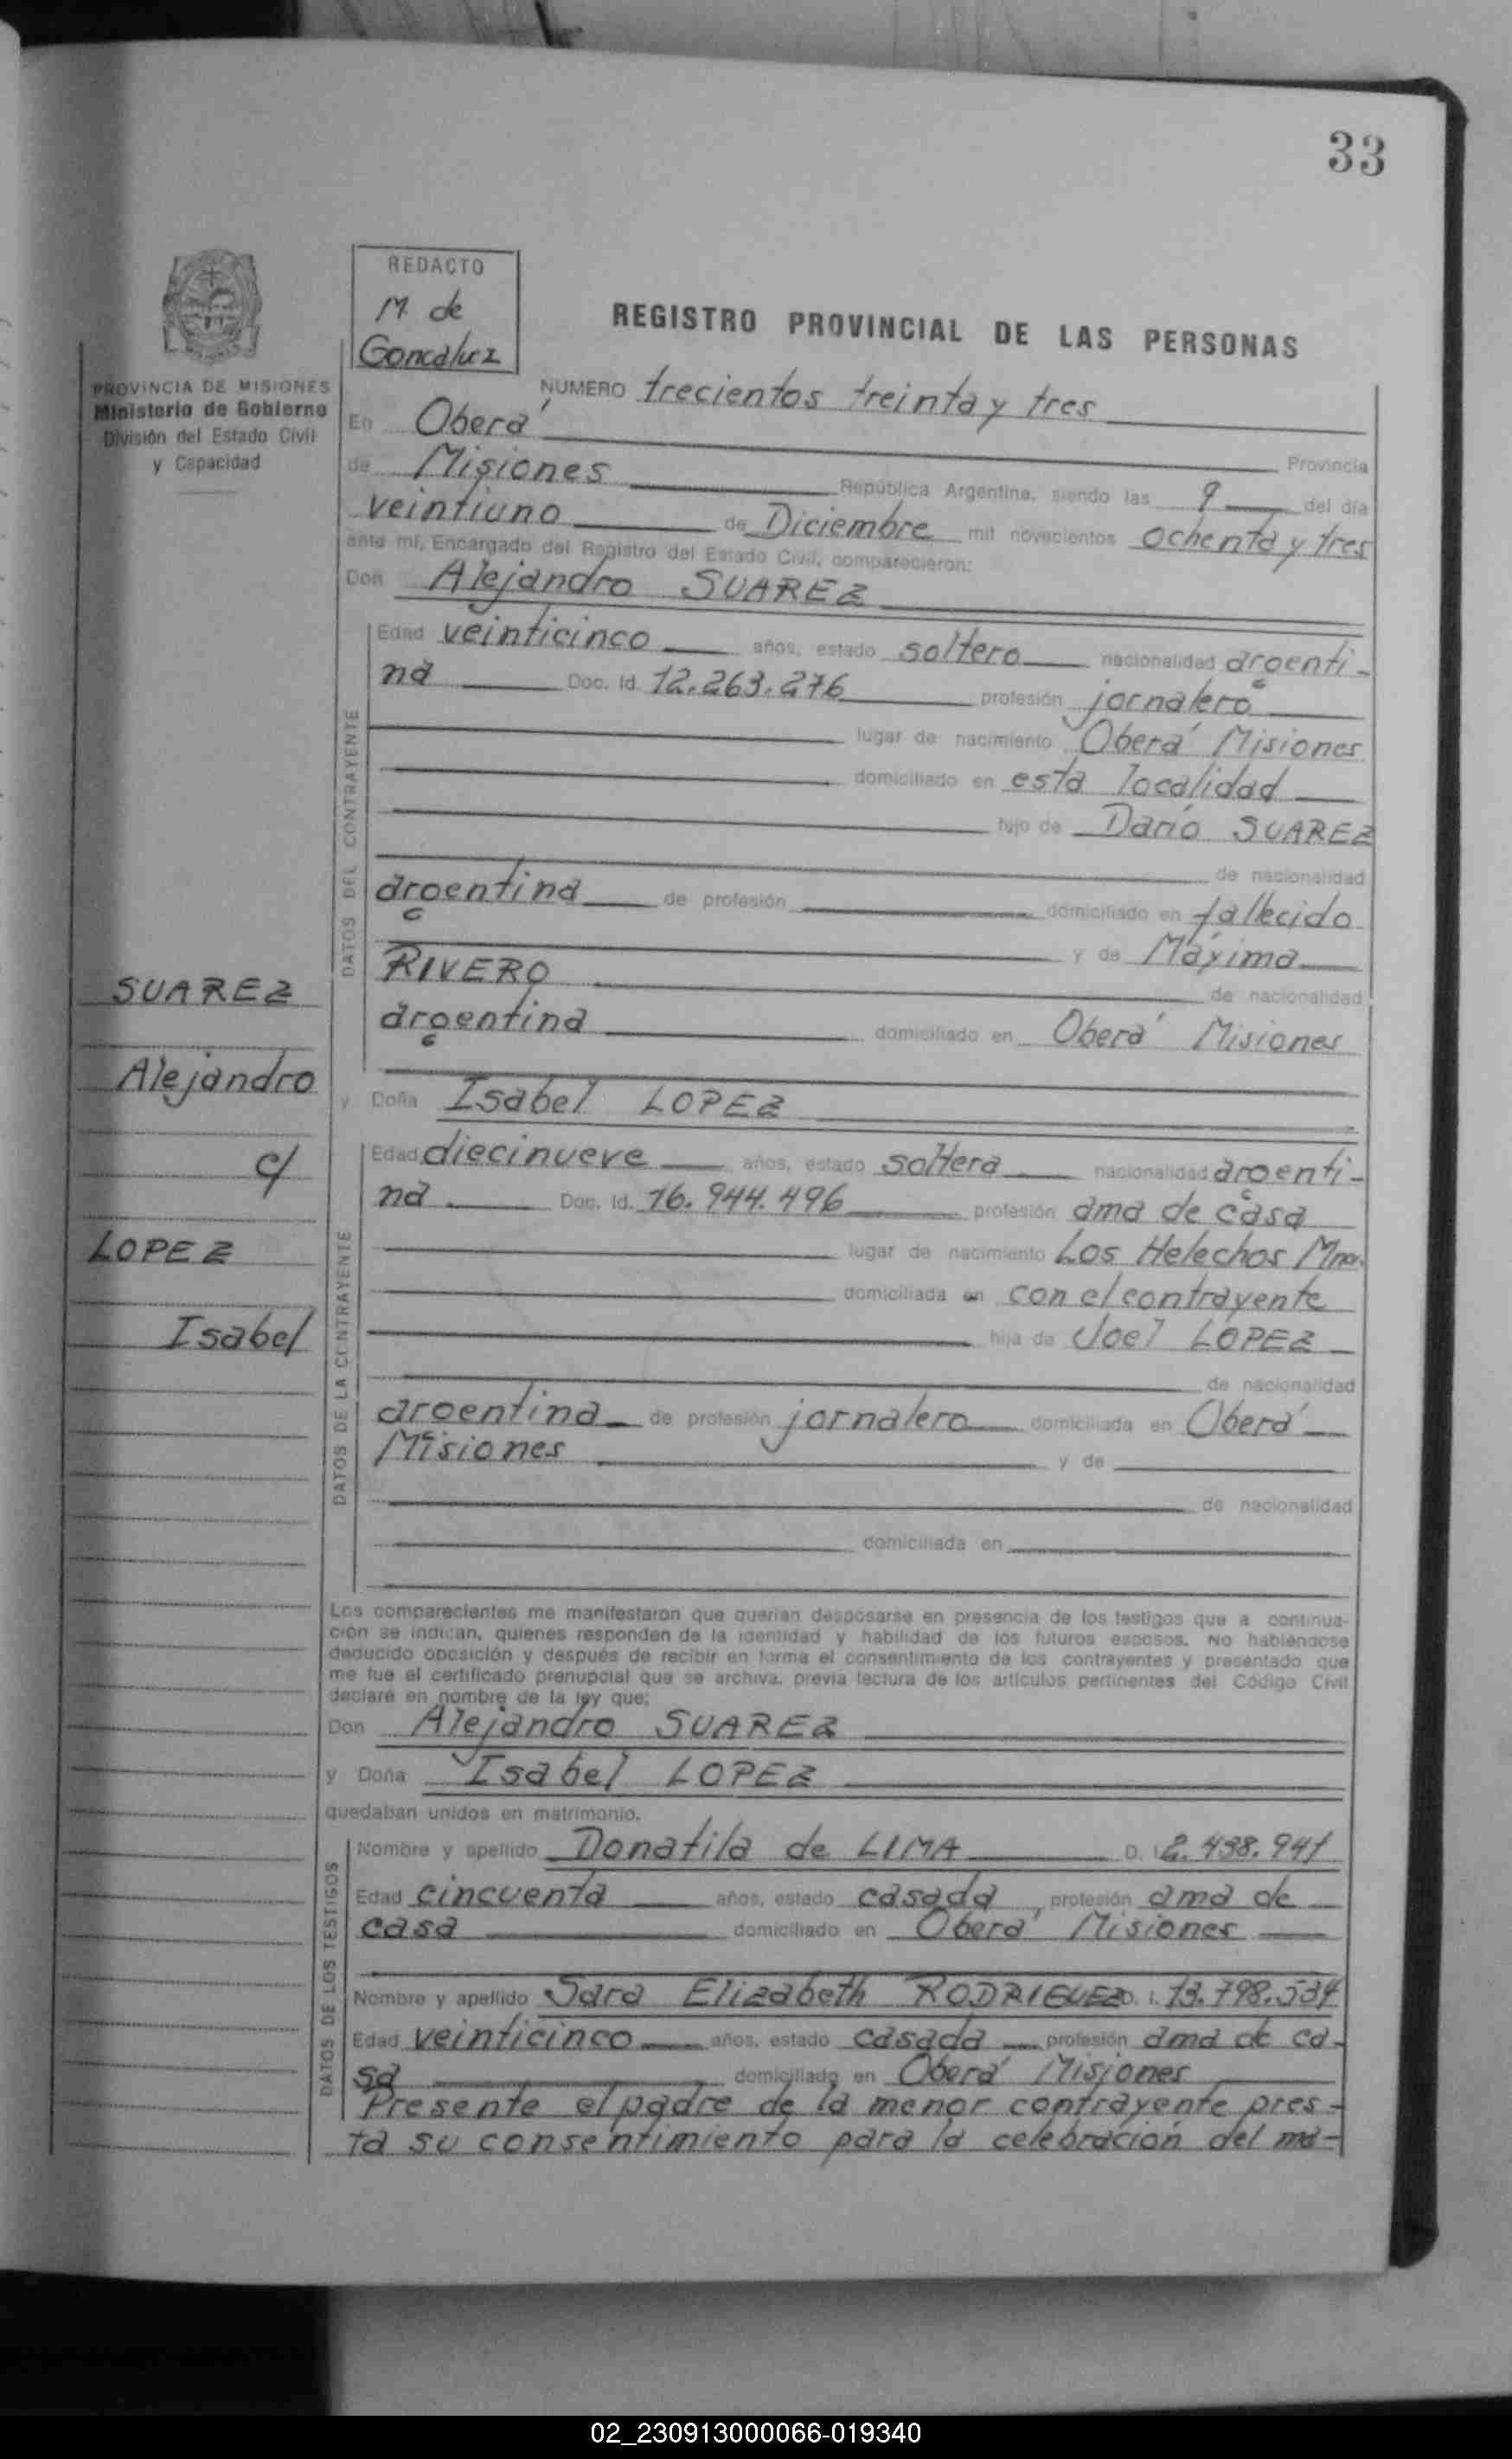 33
REDACTO
M. de
Goncalvez
REGISTRO PROVINCIAL DE LAS PERSONAS
PROVINCIA DE MISIONES
Ministerio de Gobierno
División del Estado Civil
y Capacidad
NUMERO trecientos treinta y tres
En Oberá Provincia
de Misiones República Argentina, siendo las 9 del día
veintiuno de Diciembre mil novecientos ochenta y tres
ante mí, Encargado del Registro del Estado Civil, comparecieron:
Don Alejandro SUAREZ
DATOS DEL CONTRAYENTE
Edad veinticinco años, estado soltero nacionalidad argenti-
na Doc. Id. 12.263.276 profesión jornalero
lugar de nacimiento Oberá Misiones
domiciliado en esta localidad
hijo de Darío SUAREZ
de nacionalidad
argentina de profesión domiciliado en fallecido
y de Máxima
RIVERO de nacionalidad
argentina domiciliado en Oberá Misiones
SUAREZ
Alejandro
c/
LOPEZ
Isabel
y Doña Isabel LOPEZ
DATOS DE LA CONTRAYENTE
Edad diecinueve años, estado soltera nacionalidad argenti-
na Doc. Id. 16.944.496 profesión ama de casa
lugar de nacimiento Los Helechos Mnes.
domiciliada en con el contrayente
hija de Joel LOPEZ
de nacionalidad
argentina de profesión jornalero domiciliada en Oberá
Misiones y de
de nacionalidad
domiciliada en
Los comparecientes me manifestaron que querían desposarse en presencia de los testigos que a continua-
ción se indican, quienes responden de la identidad y habilidad de los futuros esposos. No habiéndose
deducido oposición y después de recibir en forma el consentimiento de los contrayentes y presentado que
me fue el certificado prenupcial que se archiva, previa lectura de los artículos pertinentes del Código Civil
declaré en nombre de la ley que:
Don Alejandro SUAREZ
y Doña Isabel LOPEZ
quedaban unidos en matrimonio.
DATOS DE LOS TESTIGOS
Nombre y apellido Donatila de LIMA D. I. 2.438.941
Edad cincuenta años, estado casada, profesión ama de
casa domiciliado en Oberá Misiones
Nombre y apellido Sara Elizabeth RODRIGUEZ D. I. 13.798.534
Edad veinticinco años, estado casada profesión ama de ca-
sa domiciliado en Oberá Misiones
Presente el padre de la menor contrayente pres-
ta su consentimiento para la celebración del ma-
02_230913000066-019340